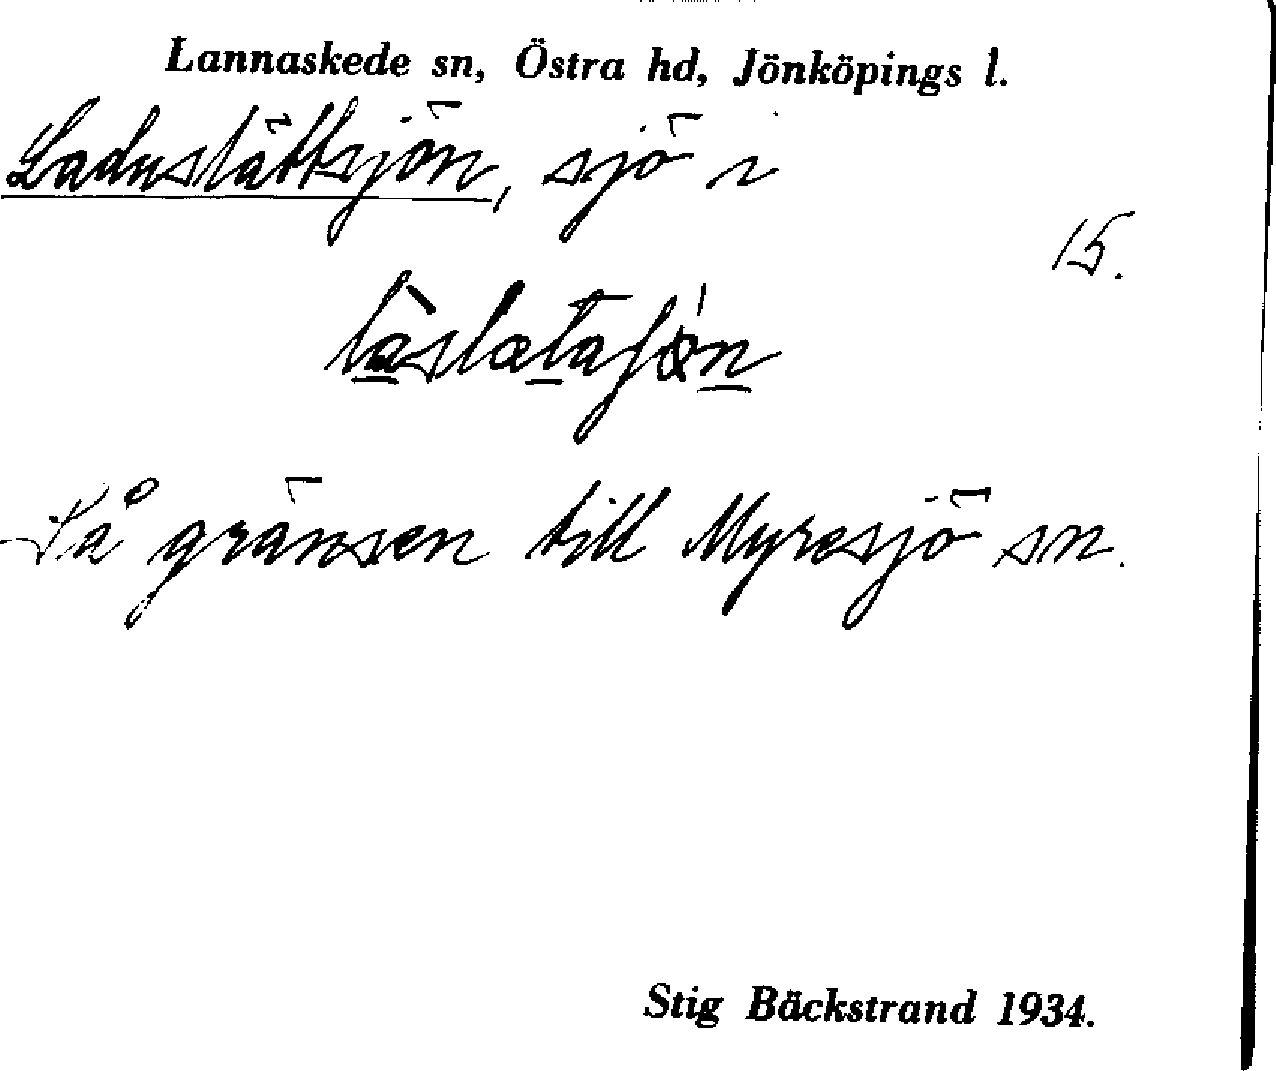 Lannaskede sn, Östra hd, Jönköpings l.
Laduslättsjön, sjö i
15.
På gränsen till Myresjö sn.
Stig Bäckstrand 1934.